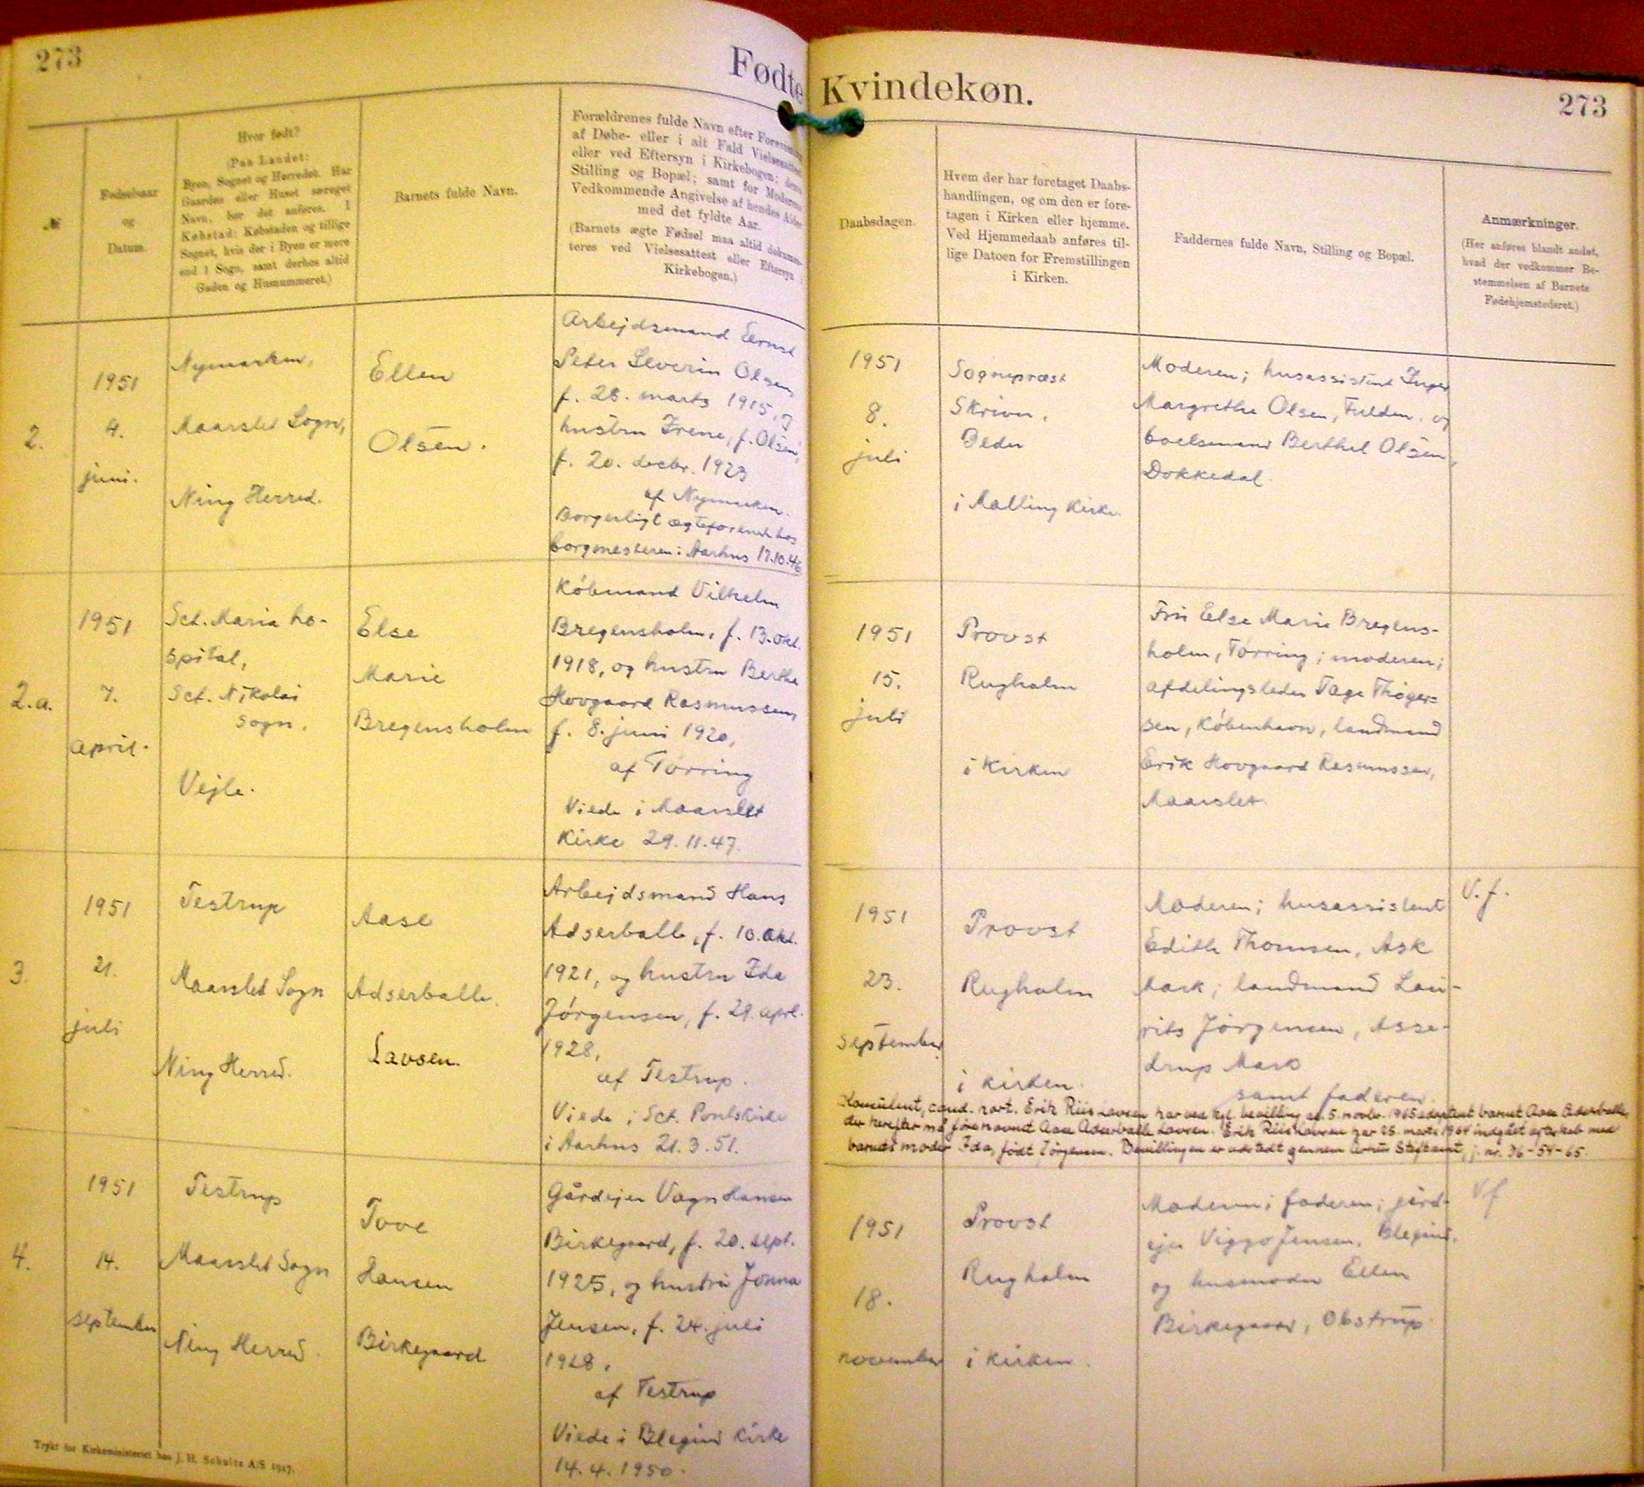 273
Fødte
Kvindekøn.
273
№
Fødselsaar
og
Datum.
Hvor født?
(Paa Landet:
Byen, Sognet og Herredet. Har
Gaarden eller Huset særeget
Navn, bør det anføres. I
Købstad: Købstaden og tillige
Sognet, hvis der i Byen er mere
end 1 Sogn, samt derhos altid
Gaden og Husnummeret.)
Barnets fulde Navn.
Forældrenes fulde Navn efter
af Døbe- eller i alt Fald
eller ved Eftersyn i Kirkebogen;
Stilling og Bopæl; samt for
Vedkommende Angivelse af hendes Alder
med det fyldte Aar.
(Barnets ægte Fødsel maa altid dokumen-
teres ved Vielsesattest eller Eftersyn i
Kirkebogen.)
Daabsdagen.
Hvem der har foretaget Daabs-
handlingen, og om den er fore-
tagen i Kirken eller hjemme.
Ved Hjemmedaab anføres til-
lige Datoen for Fremstillingen
i Kirken.
Faddernes fulde Navn, Stilling og Bopæl.
Anmærkninger.
(Her anføres blandt andet,
hvad der vedkommer Be-
stemmelsen af Barnets
Fødehjemstedsret.)
2.
1951
4.
juni.
Nymarken,
Maarslet Sogn,
Ning Herred.
Ellen
Olsen.
Arbejdsmand Ernst
Peter Severin Olsen,
f. 28. marts 1915, og
hustru Irene, f. Olsen,
f. 20. decbr. 1923
af Nymarken.
Borgerligt hos
borgmesteren i Aarhus
1951
8.
juli
Sognepræst
Skriver,
Beder
i Malling Kirke.
Moderen; husassistent Inger
Margrethe Olsen, Fulden. og
boelsmand Berthel Olsen,
Dokkedal.
2.a.
1951
7.
april.
Sct. Maria ho-
spital,
Sct. Nikolai
sogn,
Vejle.
Else
Marie
Bregensholm
Købmand Vilhelm
Bregensholm, f. 13. okt.
1918, og hustru Berthe
Hovgaard Rasmussen,
f. 8. juni 1920,
af Tørring
Viede i Maarslet
Kirke 29.11.47.
1951
15.
juli
Provst
Rugholm
i Kirken
Fru Else Marie Bregens-
holm, Tørring; moderen;
afdelingsleder Tage Thøger-
sen, København, landmand
Erik Hovgaard Rasmussen,
Maarslet.
3.
1951
21.
juli
Testrup
Maarslet Sogn
Ning Herred.
Aase
Adserballe.
Lavsen.
Arbejdsmand Hans
Adserballe, f. 10. okt.
1921, og hustru Ida
Jørgensen, f. 29. april.
1928,
af Testrup.
Viede i Sct. Poulskirke
i Aarhus 21.3.51.
1951
23.
september
Provst
Rugholm
i kirken.
Moderen; husassistent
Edith Thomsen, Ask
Mark; landmand Lau-
rits Jörgensen, Asse-
drup Mark
samt faderen.
V.f.
Konsulent, cand. Erik Riis Lavsen har ved kgl. bevilling af 5. novbr. 1965 adopteret barnet Aase Adserballe,
der herefter må føre navnet Aase Adserballe Lavsen. Erik Riis Lavsen har 25. marts 1964 indgået ægteskab med
barnets moder Ida, født Jørgensen. Bevillingen er udstedt gennem Århus Stiftamt, j. nr. 36-54-65.
4.
1951
14.
september
Testrup
Maarslet Sogn
Ning Herred.
Tove
Hansen
Birkegaard
Gårdejer Vagn Hansen
Birkegaard, f. 20. sept.
1925, og hustru Jonna
Jensen, f. 24. juli
1928,
af Testrup
Viede i Blegind Kirke
14.4.1950.
1951
18.
november
Provst
Rugholm
i kirken.
Moderen; faderen; gård-
ejer Viggo Jensen, Blegind,
og husmoder Ellen
Birkegaard, Obstrup
V.f
Trykt for Kirkeministeriet hos J. H. Schultz A/S 1947.